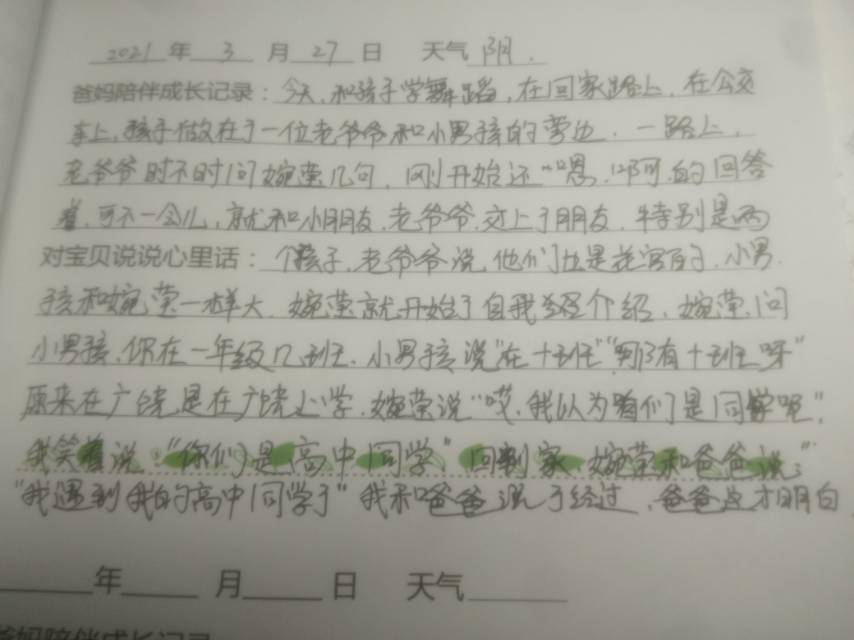 2021 年 3 月 27 日 天气 阴.
爸妈陪伴成长记录：今天,和孩子学舞蹈,在回家路上,在公交
车上,孩子做在了一位老爷爷和小男孩的旁边.一路上,
老爷爷时不时问婉莹几句,刚开始还"嗯.啊.的回答
着,可不一会儿,就和小朋友.老爷爷.交上了朋友.特别是两
对宝贝说说心里话：个孩子.老爷爷说.他们也是花官的,小男
孩和婉莹一样大.婉莹就开始了自我介绍,婉莹问
小男孩,你在一年级几班.小男孩说"在十班""哪有十班呀"
原来在广饶是在广饶上学,婉莹说"哎,我认为咱们是同学呢",
我笑着说:"你们是高中同学",回到家,婉莹和爸爸说:"
"我遇到我的高中同学了"我和爸爸说了经过,爸爸这才明白
年 月 日 天气
爸妈陪伴成长记录